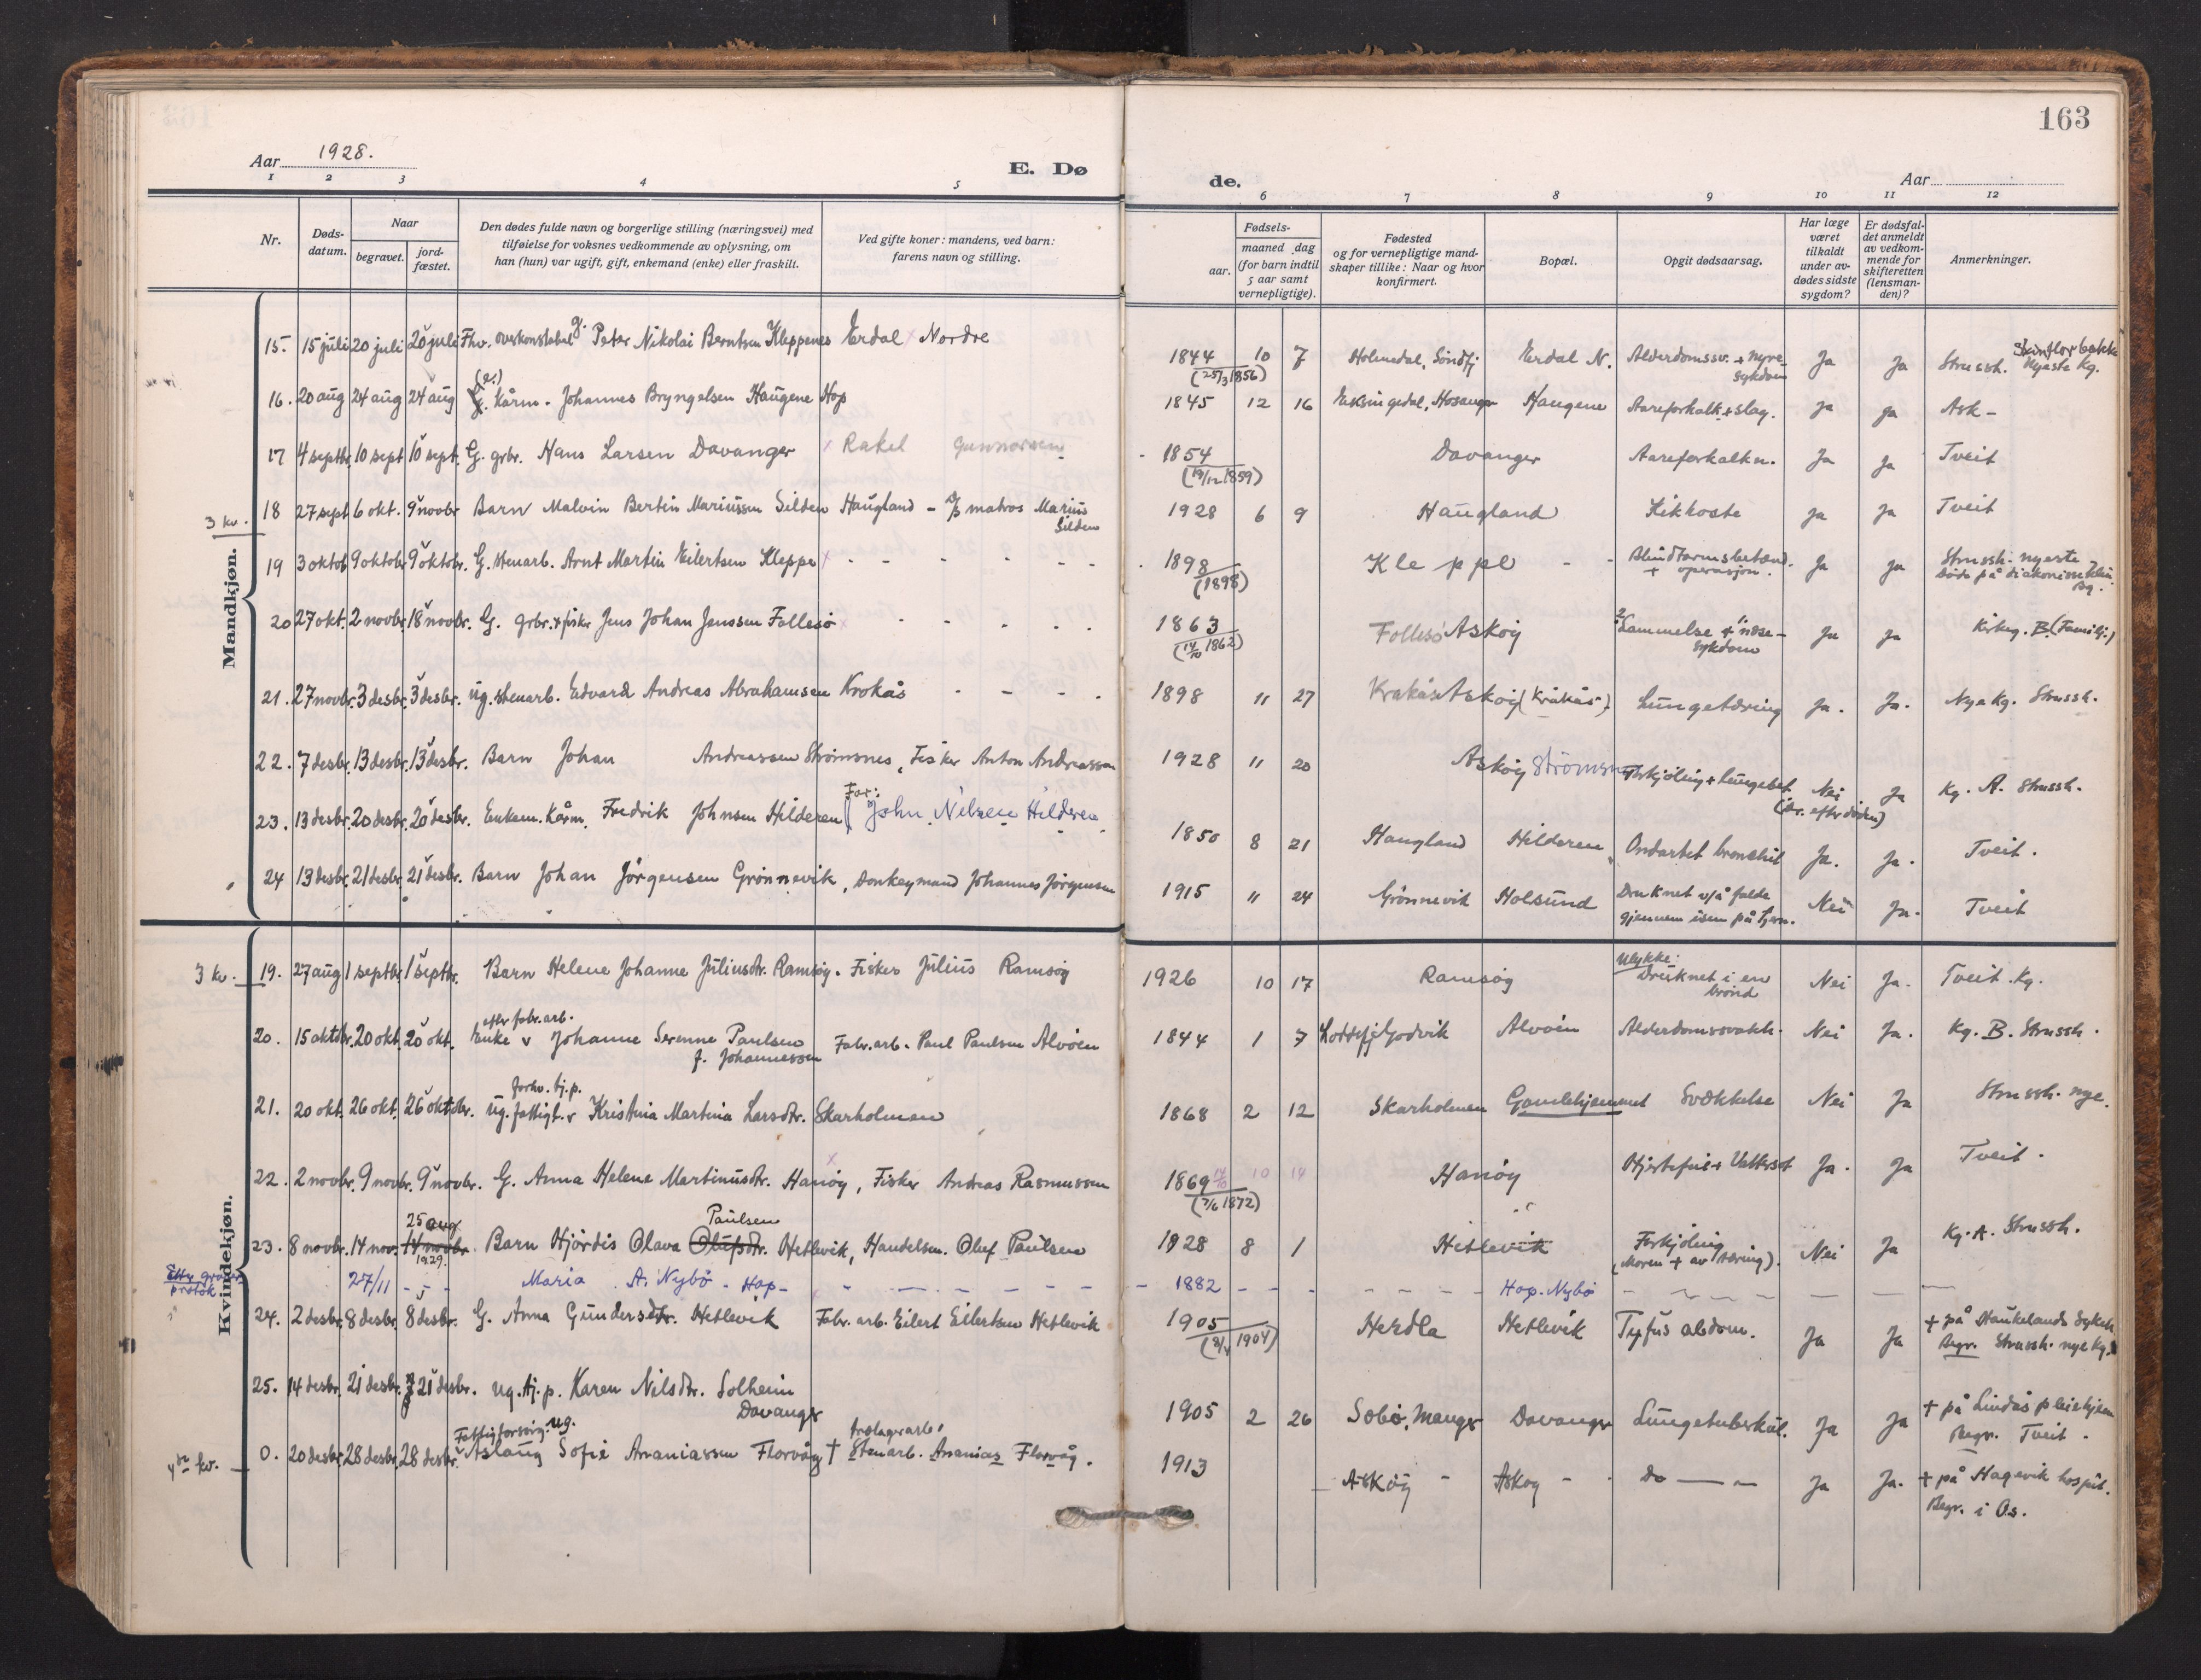 163
Aar 1928.
E. Dø de.
Aar
1 2 3 4 5 6 7 8 9 10 11 12
Nr.
Døds-datum.
Naar
begravet.
jord-fæstet.
Den dødes fulde navn og borgerlige stilling (næringsvei) med
tilføielse for voksnes vedkommende av oplysning, om
han (hun) var ugift, gift, enkemand (enke) eller fraskilt.
Ved gifte koner: mandens, ved barn:
farens navn og stilling.
Fødsels-
aar.
maaned dag
(for barn indtil
5 aar samt
vernepligtige).
Fødested
og for vernepligtige mand-
skaper tillike: Naar og hvor
konfirmert.
Bopæl.
Opgit dødsaarsag.
Har læge
været
tilkaldt
under av-
dødes sidste
sygdom?
Er dødsfal-
det anmeldt
av vedkom-
mende for
skifteretten
(lensman-
den)?
Anmerkninger.
Mandkjøn.
15. 15 juli 20 juli 20 juli Fhv. overkonstabel g. Peter Nikolai Berntsen Kleppenes Erdal Nordre 1844 (25/3 1856) 10 7 Holmedal, Søndfj Erdal N. Alderdomssv. + nyre-sykdom Ja Ja Strussh. Nyeste Kg.
16. 20 aug 24 aug 24 aug (e.) g. Kårm. Johannes Bryngelsen Haugene Hop 1845 12 16 Eksingedal, Hosanger Haugene Aareforkalk. + slag. Ja Ja Ask -
17 4 septbr. 10 sept 10 sept. G. grbr. Hans Larsen Davanger Rakel Gunnarsen 1854 (19/12 1859) Davanger Aareforkalkn. Ja Ja Tveit
3 kv. 18 27 sept 6 okt. 9 novbr Barn Malvin Bertin Mariussen Silden Haugland - D/S matros Marius Silden 1928 6 9 Haugland Kikhoste Ja Ja Tveit
19 3 oktob 9 oktobr. 9 oktobr. G. stenarb. Arnt Martin Eilertsen Kleppe 1898 (1898) Kleppe Blindtarmsbetænd. + operasjon. Ja Ja Strussh. nyeste Døde på diakonisse
20 27 okt. 2 novbr. 18 novbr. G. grbr. + fisker Jens Johan Jenssen Follesø 1863 (14/10 1862) Follesø Askøy Lammelse + næse-sykdom Ja Ja Kirkeg. B. (Famili.)
21. 27 novbr. 3 desbr. 3 desbr. ug. stenarb. Edvard Andreas Abrahamsen Krokås 1898 11 27 Krakås Askøy (Kråkås) Lungetæring Ja. Ja. Nye Kg. Strussh.
22. 7 desbr. 13 desbr. 13 desbr. Barn Johan Andreassen Strømsnes, Fisker Anton Andreassen 1928 11 20 Askøy Strømsn Forkjøling + lungebet. Nei (dr. efter døden) Ja Kg. A. Strussh.
23. 13 desbr. 20 desbr. 20 desbr. Enkem. Kårm. Fredrik Johnsen Hilderen Far: John Nilsen Hilderen 1850 8 21 Haugland Hilderen Ondartet bronchit Ja. Ja. Tveit.
24 13 desbr. 21 desbr. 21 desbr. Barn Johan Jörgensen Grönnevik, Donkeymand Johannes Jørgensen 1915 11 24 Grönnevik Holsund Druknet v/å falde gjennem isen på tjern. Nei Ja. Tveit
Kvindekjøn.
3 kv. 19. 27 aug 1 septbr. 1 septbr. Barn Helene Johanne Juliusdtr. Ramsøy. Fisker Julius Ramsøy 1926 10 17 Ramsøy Ulykke: Druknet i en brönd Nei Ja. Tveit Kg.
20. 15 oktbr. 20 okt. 20 okt. Enke v efter fabr.arb. Johanne Serenne Paulsen f. Johannessen Fabr.arb. Paul Paulsen Alvöen 1844 1 7 Godvik Alvøen Alderdomssvakh. Nei Ja. Kg. B. Strussh.
21. 20 okt. 26 okt. 26 oktbr. ug. fattigl. v forhv. tj.p. Kristina Martina Larsdtr. Skarholmen 1868 2 12 Skarholmen Gamlehjemmet Svækkelse Nei Ja Strussh. nye.
22. 2 novbr. 9 novbr. 9 novbr. G. Anna Helene Martinusdtr. Hanøy, Fisker Andreas Rasmussen 1869 (7/6 1872) 10 14 Hanöy Hjertefeil + Vattersot Ja. Ja Tveit.
23. 8 novbr. 14 nov. 14 novbr. 25 aug. 1929. Barn Hjördis Olava Olufsdtr. Paulsen Hetlevik, Handelsm. Oluf Paulsen 1928 8 1 Hetlevik Forkjöling (Moren + av tæring). Nei Ja Kg. A. Strussh.
Efter graver-protok 27/11 Maria A. Nybö - Hop 1882 Hop. Nybö
24. 2 desbr. 8 desbr. 8 desbr. G. Anna Gundersdtr. Hetlevik Fabr. arb. Eilert Eilertsen Hetlevik 1905 (1904) Herdla Hetlevik Tyfus abdom. Ja Ja + på Haukelands Sykeh. Begr. Strussh. nye Kg.
25. 14 desbr. 21 desbr. 21 desbr. ug. tj. p. Karen Nilsdtr. Solheim Davanger 1905 2 26 Sæbø, Manger Davanger Lungetuberkul. Ja Ja + på Lindås pleiehjem Begr. Tveit.
4de kv. 0. 20 desbr. 28 desbr. 28 desbr. Fattigforsörg. ug. Aslaug Sofie Ananiassen Florvåg + Stenarb. Ananias Florvåg. 1913 Askøy Askøy Do Ja Ja. + på Hagevik hospit. Begr. i Os.